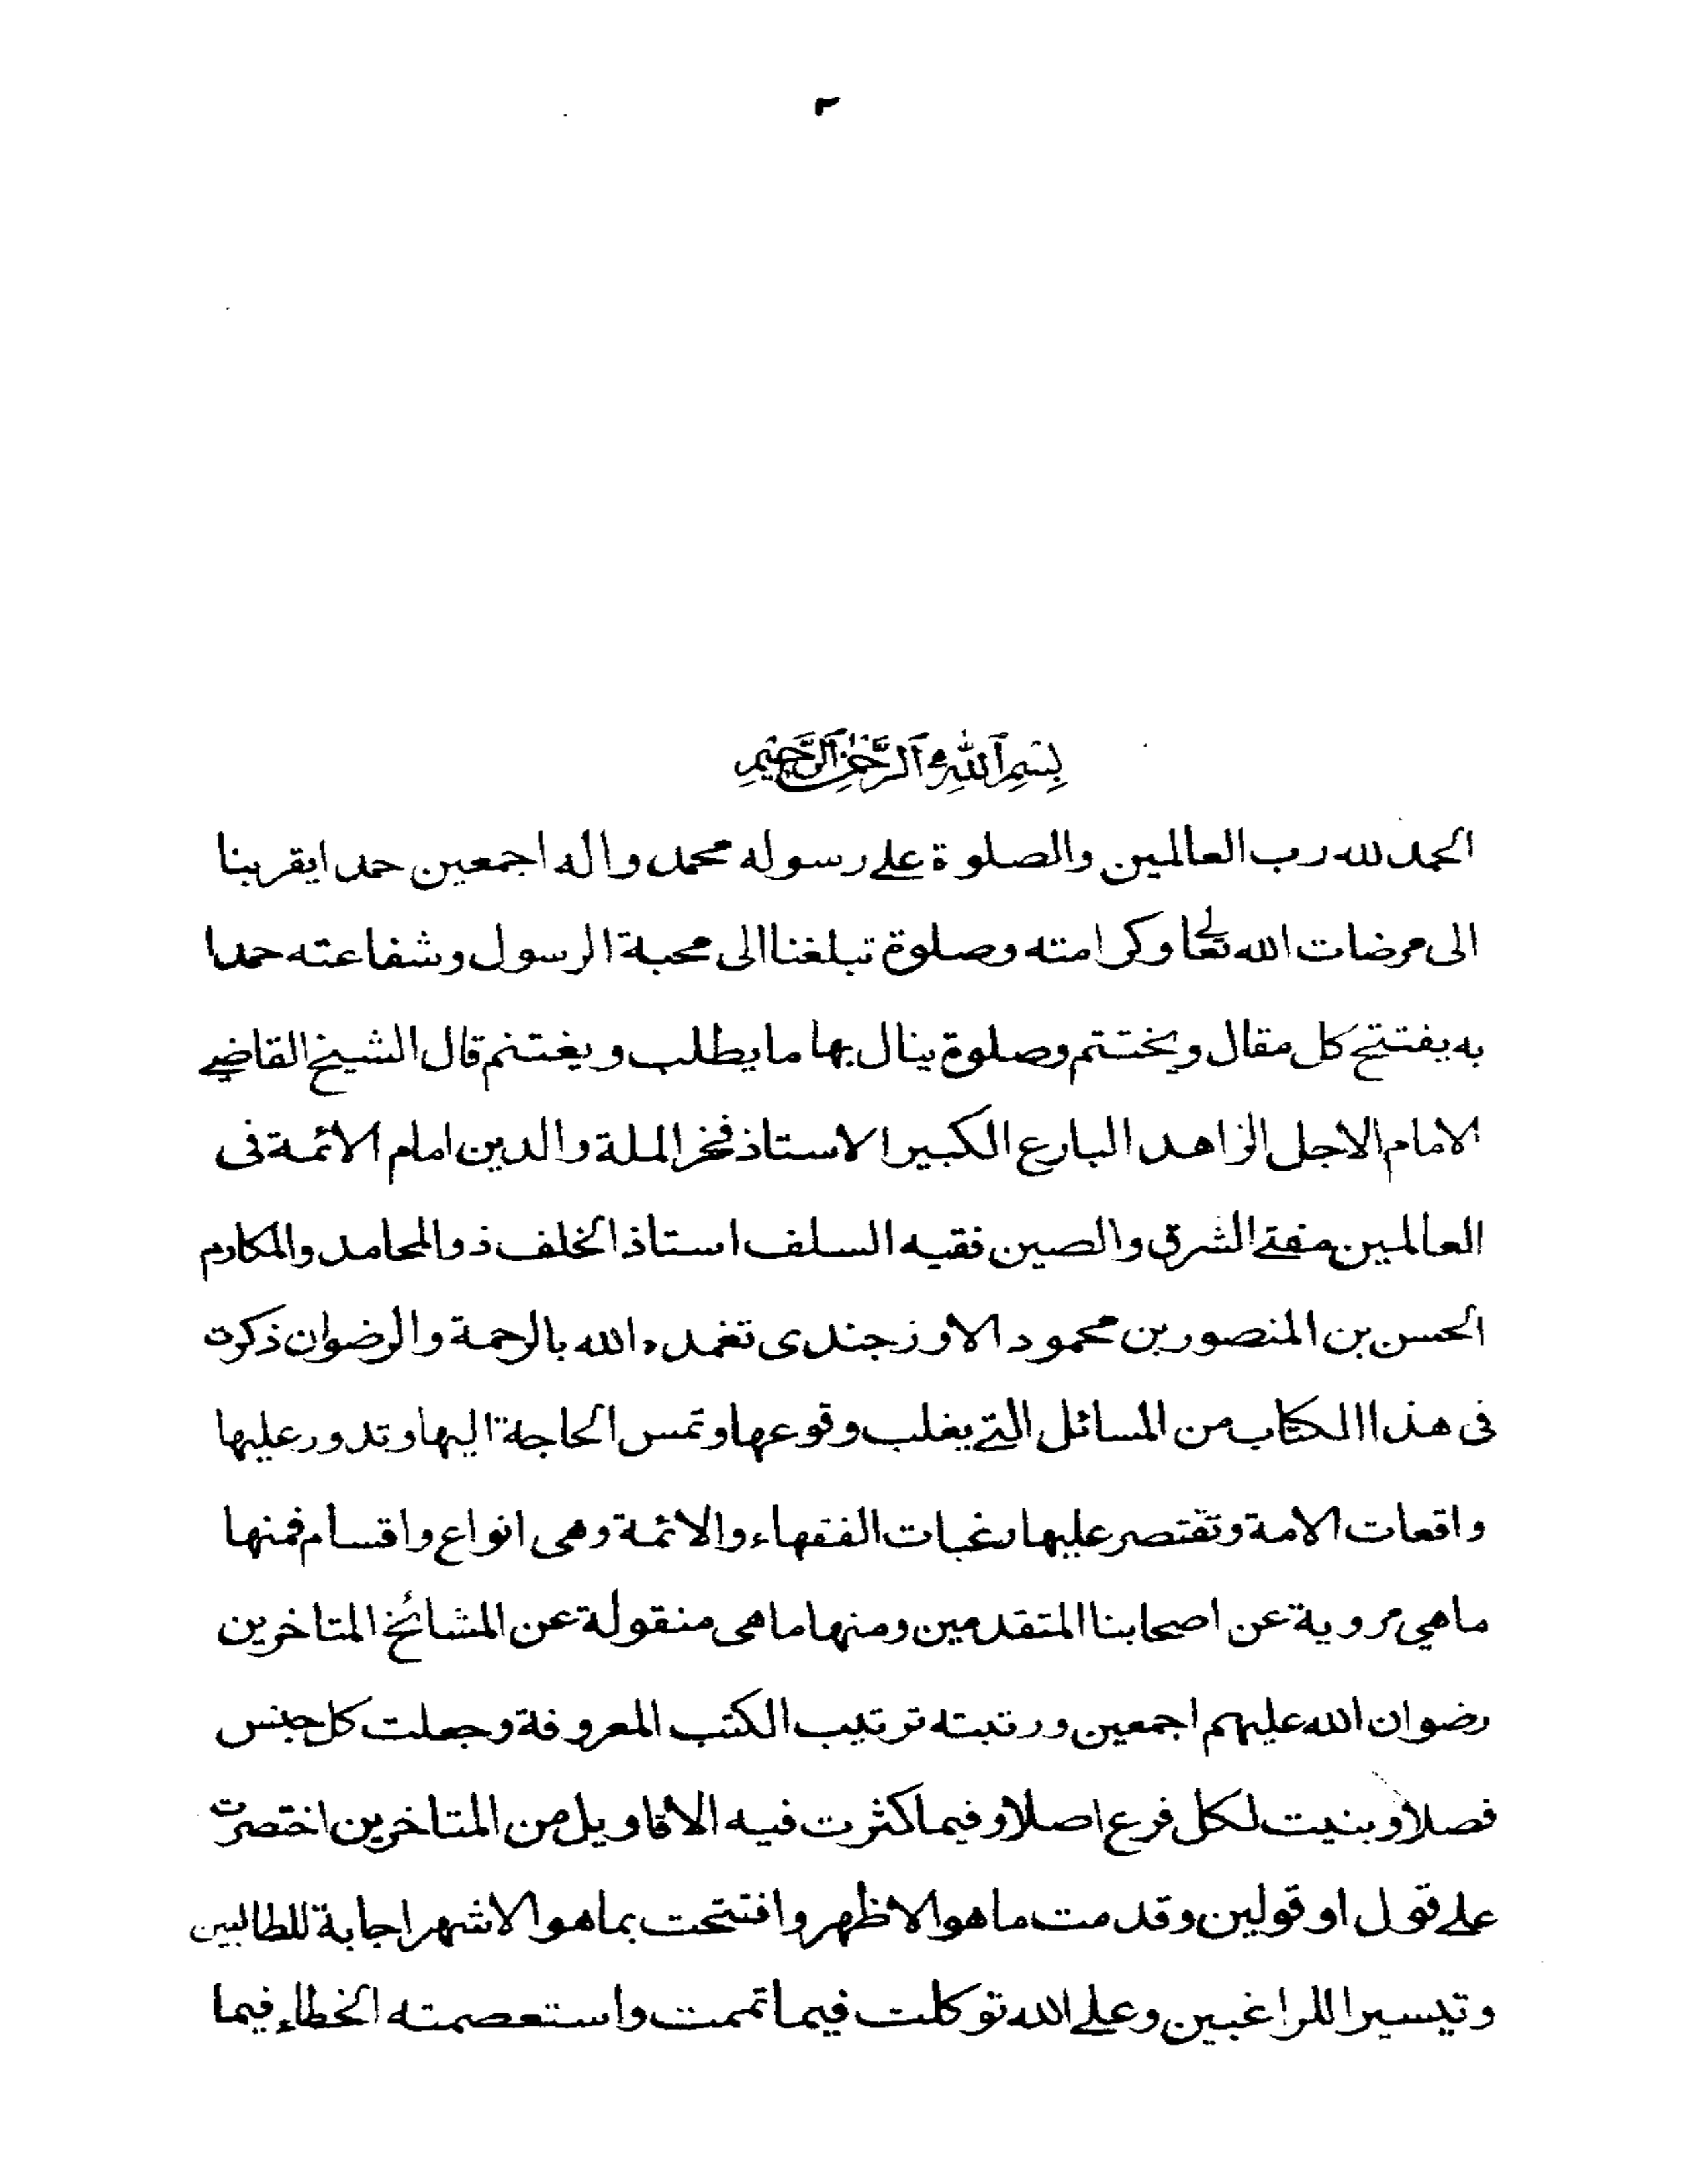 ٣
بِسْمِ اللهِ الرَّحْمٰنِ الرَّحِيْمِ
الحمد لله رب العالمين والصلوة على رسوله محمد واله اجمعين حمدا يقربنا
الى مرضات الله تعالى وكرامته وصلوة تبلغنا الى محبة الرسول وشفاعته حمدا
به يفتتح كل مقال ويختتم وصلوة ينال بها ما يطلب ويغتنم قال الشيخ القاضي
الامام الاجل الزاهد البارع الكبير الاستاذ فخر الملة والدين امام الائمة فى
العالمين مفتي الشرق والصين فقيه السلف استاذ الخلف ذو المحامد والمكارم
الحسن بن المنصور بن محمود الاوزجندى تغمده الله بالرحمة والرضوان ذكرت
فى هذا الكتاب من المسائل التي يغلب وقوعها وتمس الحاجة اليها وتدور عليها
واقعات الامة وتقتصر عليها رغبات الفقهاء والائمة وهى انواع واقسام فمنها
ما هي مروية عن اصحابنا المتقدمين ومنها ما هى منقولة عن المشائخ المتاخرين
رضوان الله عليهم اجمعين ورتبته ترتيب الكتب المعروفة وجعلت كل جنس
فصلا وبنيت لكل فرع اصلا وفيما كثرت فيه الاقاويل من المتاخرين اختصرت
على قول او قولين وقدمت ما هو الاظهر وافتتحت بما هو الاشهر اجابة للطالبين
وتيسيرا للراغبين وعلى الله توكلت فيما تممت واستعصمته الخطاء فيما